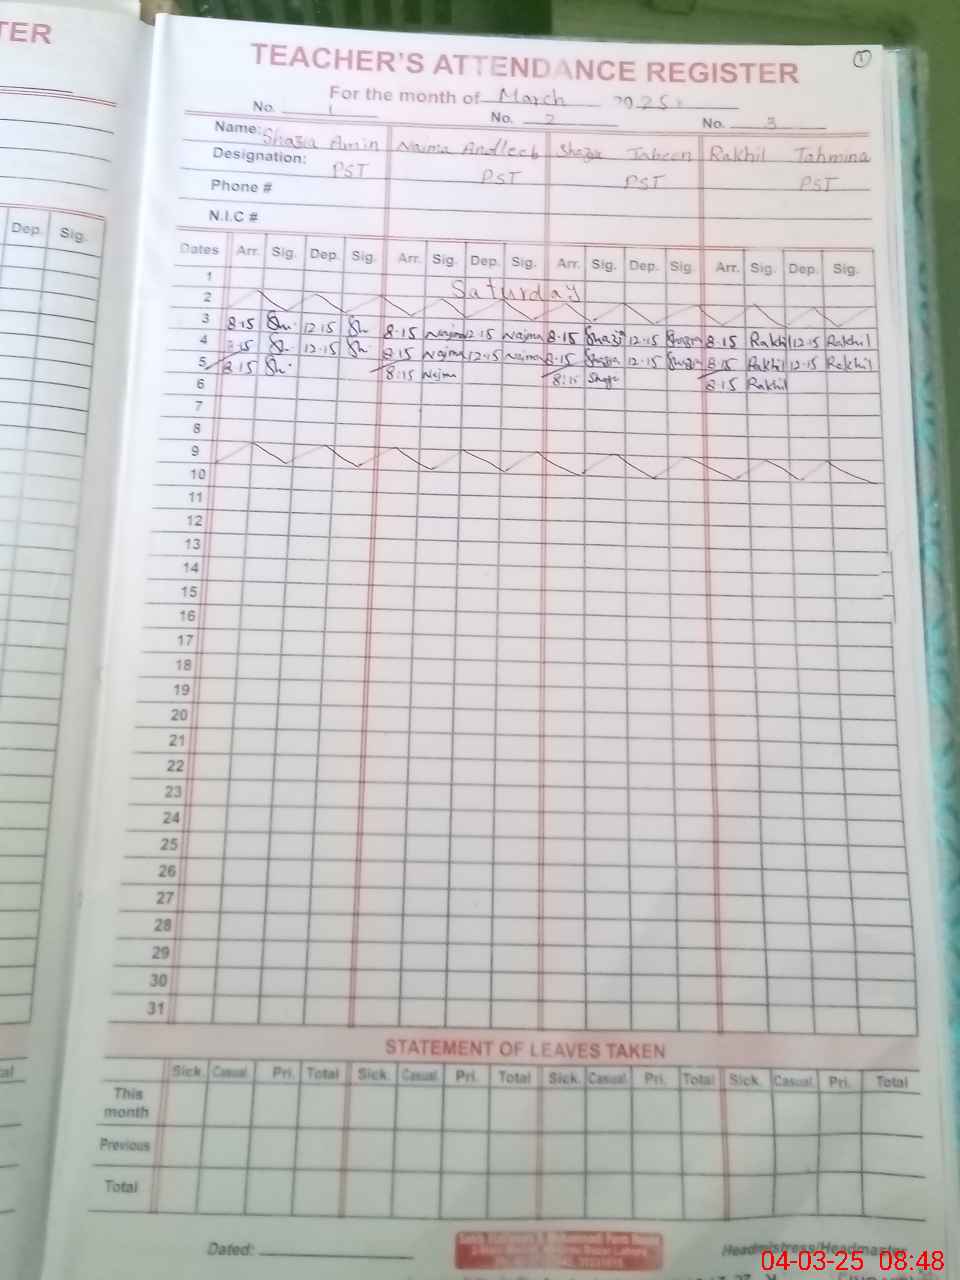 TER
TEACHER'S ATTENDANCE REGISTER
1
For the month of March 2025
No. 1 No. 2 No. 3
Name: Shazia Amin Najma Andleeb Shazia Taheen Rakhil Tahmina
Designation: PST PST PST PST
Phone #
N.I.C #
Dep. Sig.
Dates Arr. Sig. Dep. Sig. Arr. Sig. Dep. Sig. Arr. Sig. Dep. Sig. Arr. Sig. Dep. Sig.
1 Saturday
2
3 8.15 Sh. 12.15 Sh 8.15 Najma 12.15 Najma 8.15 Shazi 12.15 Shazia 8.15 Rakhil 12.15 Rakhil
4 8.15 Sh. 12.15 Sh. 8.15 Najma 12.15 Najma 8.15 Shazia 12.15 Shazia 8.15 Rakhil 12.15 Rakhil
5 8.15 Sh. 8.15 Najma 8.15 Shazia 8.15 Rakhil
6
7
8
9
10
11
12
13
14
15
16
17
18
19
20
21
22
23
24
25
26
27
28
29
30
31
STATEMENT OF LEAVES TAKEN
Sick. Casual. Pri. Total Sick. Casual. Pri. Total Sick. Casual. Pri. Total Sick. Casual. Pri. Total
This
month
Previous
Total
Dated: Headmistress/Headmaster
04-03-25 08:48